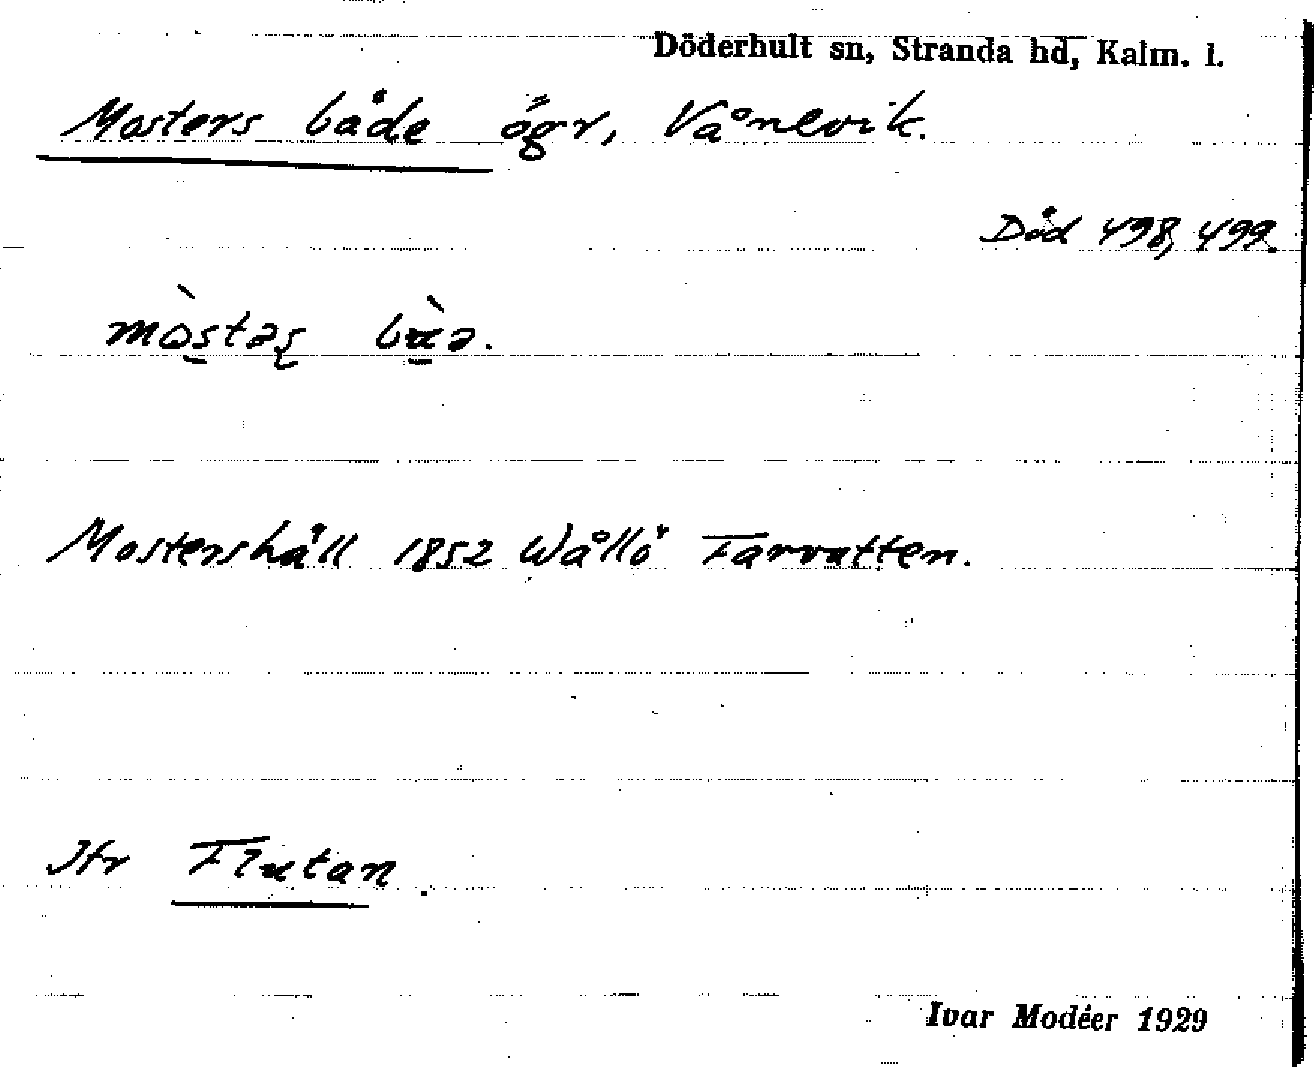 Döderhult sn, Stranda hd, Kalm. l.
Mosters både ögr, Vånevik.
Död 498, 499.
mòstəʂ bàə.
Mostershåll 1852 Wållö Farvatten.
Jfr Flutan.
Ivar Modéer 1929